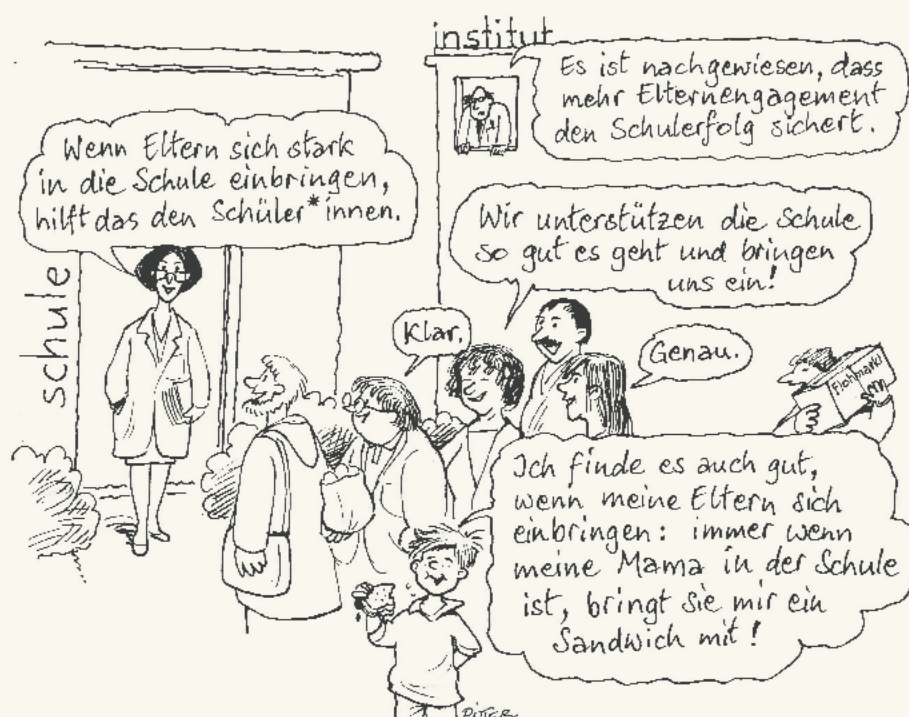 institut
Es ist nachgewiesen, dass
mehr Elternengagement
den Schulerfolg sichert.
Wenn Eltern sich stark
in die Schule einbringen,
hilft das den Schüler*innen.
schule
Wir unterstützen die Schule
so gut es geht und bringen
uns ein!
Klar.
Genau.
Flohmarkt
Ich finde es auch gut,
wenn meine Eltern sich
einbringen: immer wenn
meine Mama in der Schule
ist, bringt sie mir ein
Sandwich mit!